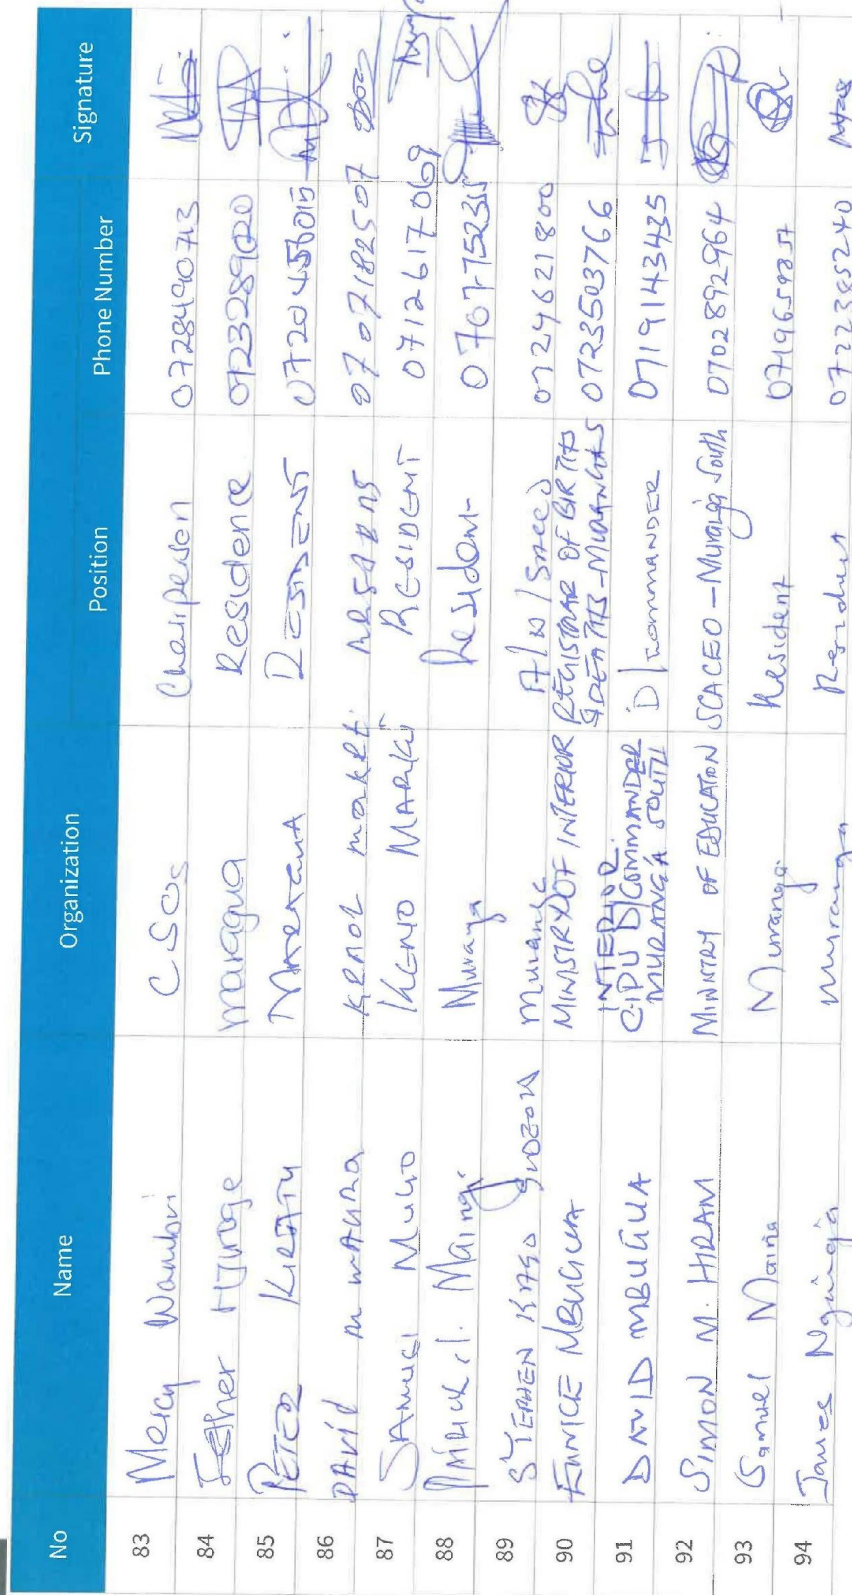 No Name Organization Position Phone Number Signature
83 Mercy Wambui CSOs Chairperson 0728490713
84 Esther Njoroge maragua Residence 0723289020
85 PETER KIRATU MARAGUA RESIDENT 0720456015
86 DAVID M MAURA KENOL market 0707182507
87 SAMUEL MUCIO KENO MARKET RESIDENT 0712617069
88 PATRICK I. Maingi Muranga Resident 0707752315
89 STEPHEN KAGO muranga 0724621800
90 EUNICE MBUGUA MINISTRY OF INTERIOR REGISTRAR OF BIRTHS
& DEATHS - MURANGA'S 0723503766
91 DAVID MBUGUA INTERIOR
CIPU D/COMMANDER
MURANG'A SOUTH D/COMMANDER 0719143435
92 SIMON M. HIRAM MINISTRY OF EDUCATION SCACEO - Murang'a South 0702892964
93 Samuel Maina Murang'a Resident
94 James Ngungia muranga Resident 0722385240